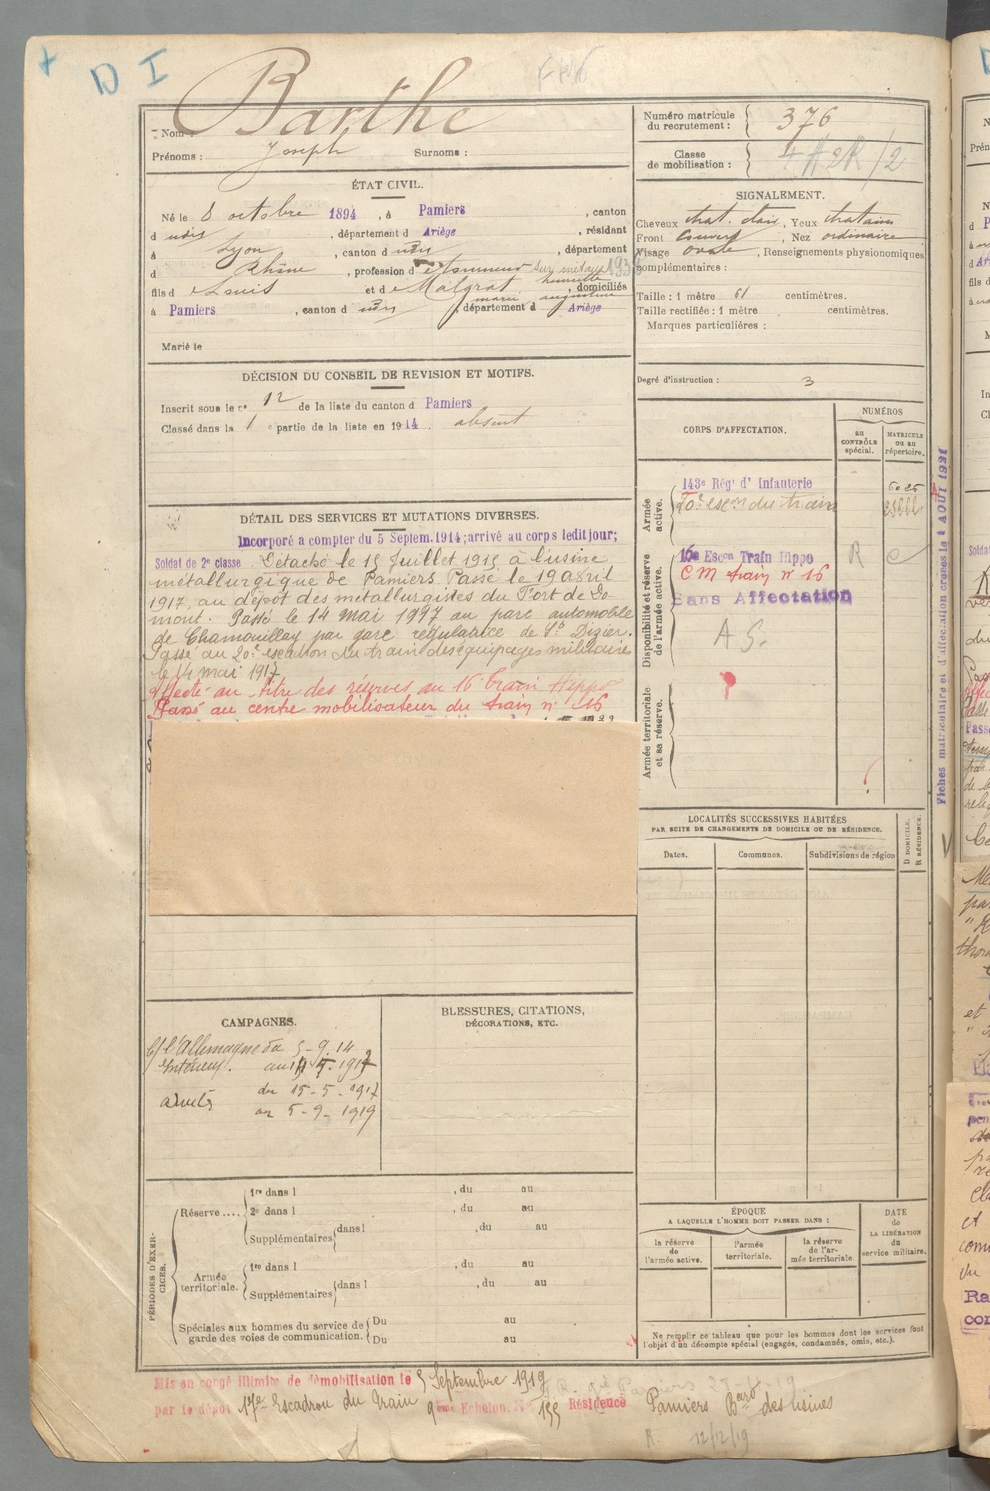 D I
Barthe
Nom :
Prénoms : Joseph Surnoms :
Numéro matricule du recrutement : 376
Classe de mobilisation :
ÉTAT CIVIL.
Né le 8 octobre 1894, à Pamiers, canton
d udit, département d Ariège, résidant
à Lyon, canton d udit, département
d Rhône, profession d tourneur sur métaux
fils d Louis et d Malgrat henriette, domiciliés
marie augustine
à Pamiers, canton d udit, département d Ariège
Marié le
SIGNALEMENT.
Cheveux chat. clair, Yeux chatains
Front couvert, Nez ordinaire
Visage ovale, Renseignements physionomiques
complémentaires :
Taille : 1 mètre 61 centimètres.
Taille rectifiée : 1 mètre centimètres.
Marques particulières :
Degré d'instruction : 3
DÉCISION DU CONSEIL DE REVISION ET MOTIFS.
Inscrit sous le n° 12 de la liste du canton d Pamiers
Classé dans la 1 e partie de la liste en 1914. absent
DÉTAIL DES SERVICES ET MUTATIONS DIVERSES.
Incorporé a compter du 5 Septem. 1914; arrivé au corps ledit jour;
Soldat de 2e classe Détaché le 15 Juillet 1915 à l'usine
métallurgique de Pamiers. Passé le 19 avril
1917, au dépôt des métallurgistes du Port de Do
mont. Passé le 14 mai 1917 au parc automobile
de Chamouilley par gare régulatrice de St Dizier.
Passé au 20e escadron du train des équipages militaires
le 14 mai 1917
Affecté au titre des réserves au 16 Train Hippo
Passé au centre mobilisateur du train n° 16
CORPS D'AFFECTATION.
NUMÉROS
AU CONTRÔLE spécial.
MATRICULE OU AU répertoire.
Armée active.
143e Rég. d' Infanterie
20e escon du train
Disponibilité et réserve de l'armée active.
16e Escon Train Hippo R
C M train n° 16
Sans Affectation
A S.
Armée territoriale et sa réserve.
Fiches matriculaire et d'affectation créées le 1 AOUT 1921
LOCALITÉS SUCCESSIVES HABITÉES
PAR SUITE DE CHANGEMENTS DE DOMICILE OU DE RÉSIDENCE.
Dates. Communes. Subdivisions de région
D. DOMICILE. R. RÉSIDENCE.
CAMPAGNES.
C/ l'Allemagne du 5-9.14
Intérieur. au 14-5-1917
du 15-5-1917
armées au 5-9-1919
BLESSURES, CITATIONS,
DÉCORATIONS, ETC.
PÉRIODES D'EXERCICES.
Réserve .... 1re dans l , du au
2e dans l , du au
Supplémentaires dans l , du au
Armée territoriale. 1re dans l , du au
Supplémentaires dans l , du au
Spéciales aux hommes du service de garde des voies de communication. Du au
Du au
ÉPOQUE
A LAQUELLE L'HOMME DOIT PASSER DANS :
la réserve de l'armée active.
l'armée territoriale.
la réserve de l'armée territoriale.
DATE de LA LIBÉRATION du service militaire.
Ne remplir ce tableau que pour les hommes dont les services font
l'objet d'un décompte spécial (engagés, condamnés, omis, etc.).
Mis en congé illimité de démobilisation le 5 Septembre 1919
par le dépôt 17e Escadron du Train 9ème Echelon. N° 155 Résidence Pamiers Bard des usines
R. 12/12/19